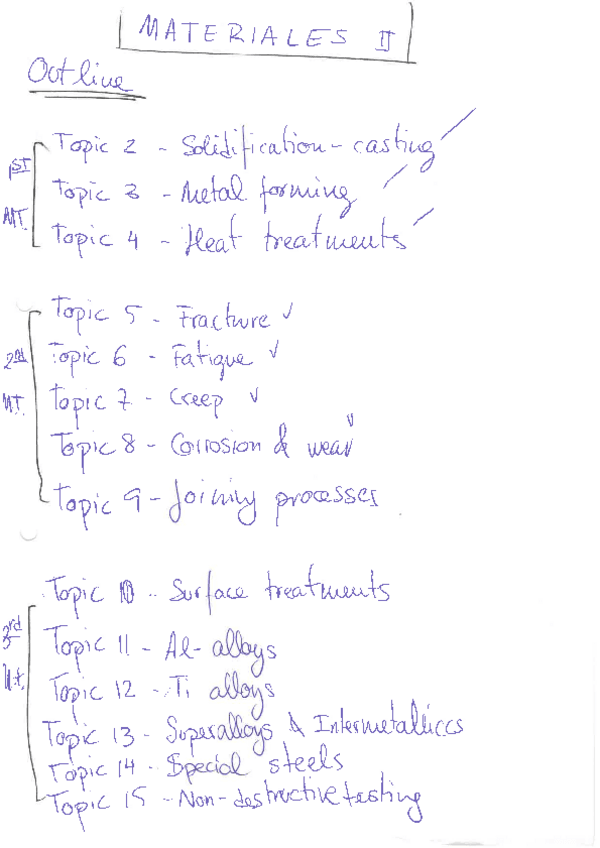 MATERIALES II
Outline
Topic 2 - Solidification - casting
1ST
Topic 3 - Metal forming
MT.
Topic 4 - Heat treatments
Topic 5 - Fracture
2nd
Topic 6 - Fatigue
MT.
Topic 7 - Creep
Topic 8 - Corrosion & wear
Topic 9 - Joining processes
Topic 10 - Surface treatments
3rd
Topic 11 - Al-alloys
Topic 12 - Ti alloys
Topic 13 - Superalloys & Intermetallics
Topic 14 - Special steels
Topic 15 - Non-destructive testing